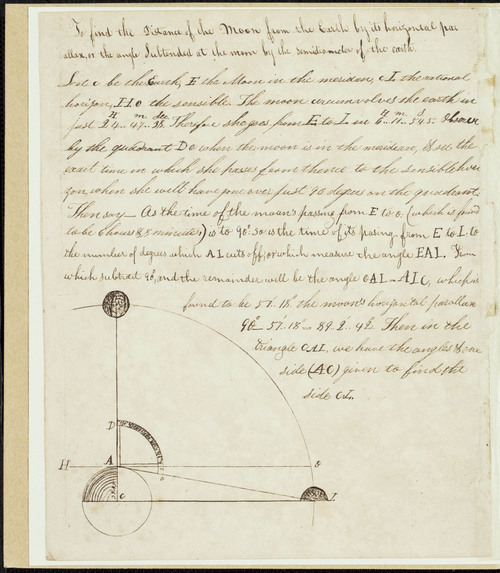 To find the Distance of the Moon from the Earth by its horizontal par
allax, or the angle subtended at the moon by the semidiameter of the earth.
Let c be the Earth, E the Moon in the meridian, cI the rational
horizon, HO the sensible. The moon circumvolves the earth in
just 24 47 Therefore she goes from E to I in 6 11 Observe
by the quadrant D o when the moon is in the meridian, & see the
exact time in which she passes from thence to the sensible hori
zon, when she will have gone over just 90 degrees on the quadrant.
Then say — As the time of the moon's passing from E to o. (which is found
to be 6 hours 8 minutes) is to 90°. So is the time of its passing from E to I. to
the number of degrees which AI cuts off, or which measure the angle EAI. From
which subtract 90°, and the remainder will be the angle OAI = AIC, which is
found to be 57' 18" the moon's horizontal parallax
90° — 57' 18" = 89 . 2 . 42 Then in the
triangle CAI, we have the angles & one
side (AC) given to find the
side CI.
D
H
A
o
o
C
I